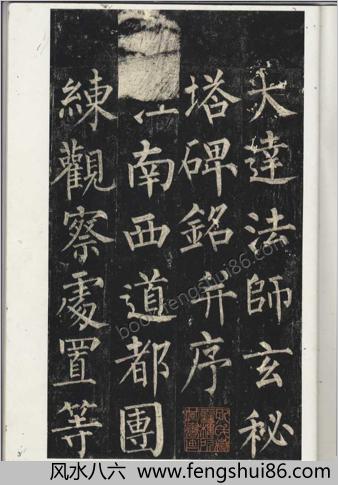 大達法師玄秘
塔碑銘并序
江南西道都團
練觀察處置等
book.fengshui86.com
风水八六 www.fengshui86.com